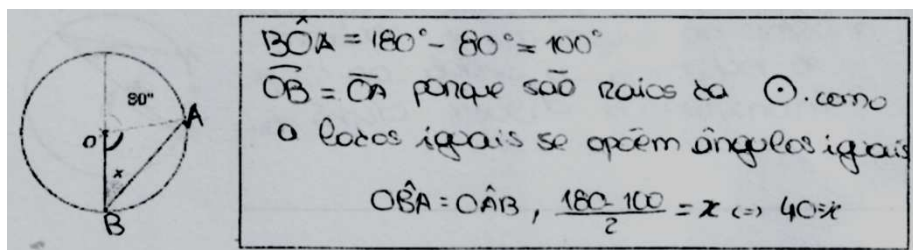 80°
A
O
x
B
BÔA = 180° - 80° = 100°
OB = OA porque são raios da ⊙. como
a lados iguais se opõem ângulos iguais
OB̂A = OÂB, (180-100)/2 = x (=) 40=x